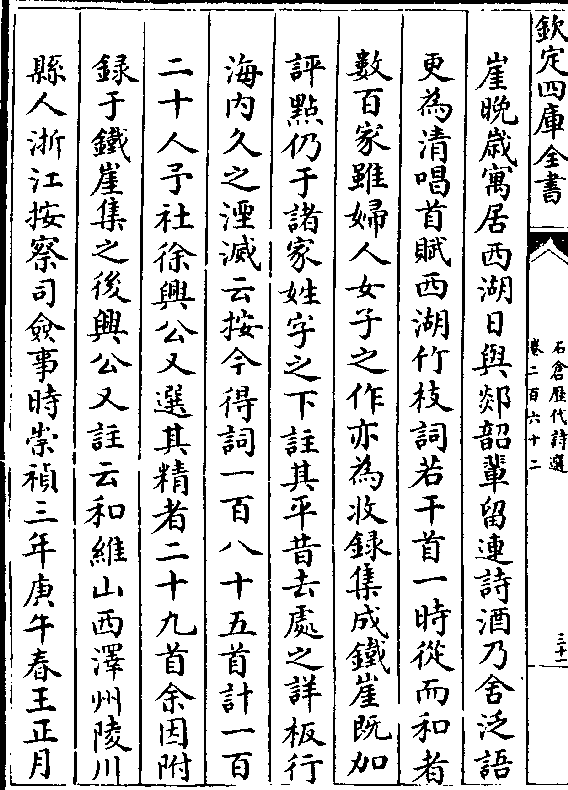 欽定四庫全書
石倉歴代詩選
卷二百六十二
三十一
崖晩歲寓居西湖日與郯韶輩留連詩酒乃舍泛語
更為清唱首賦西湖竹枝詞若干首一時從而和者
數百家雖婦人女子之作亦為收録集成鐵崖既加
評點仍于諸家姓字之下註其平昔去處之詳板行
海内久之湮滅云按今得詞一百八十五首計一百
二十人予社徐興公又選其精者二十九首余因附
録于鐵崖集之後興公又註云和維山西澤州陵川
縣人浙江按察司僉事時崇禎三年庚午春王正月